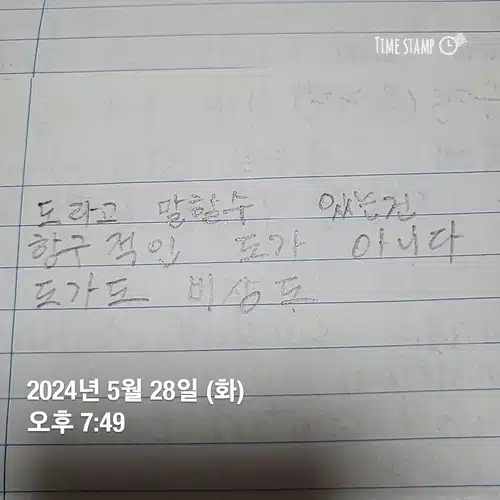 TIME STAMP
도라고 말할수 있는건
항구적인 도가 아니다
도가도 비상도
2024년 5월 28일 (화)
오후 7:49